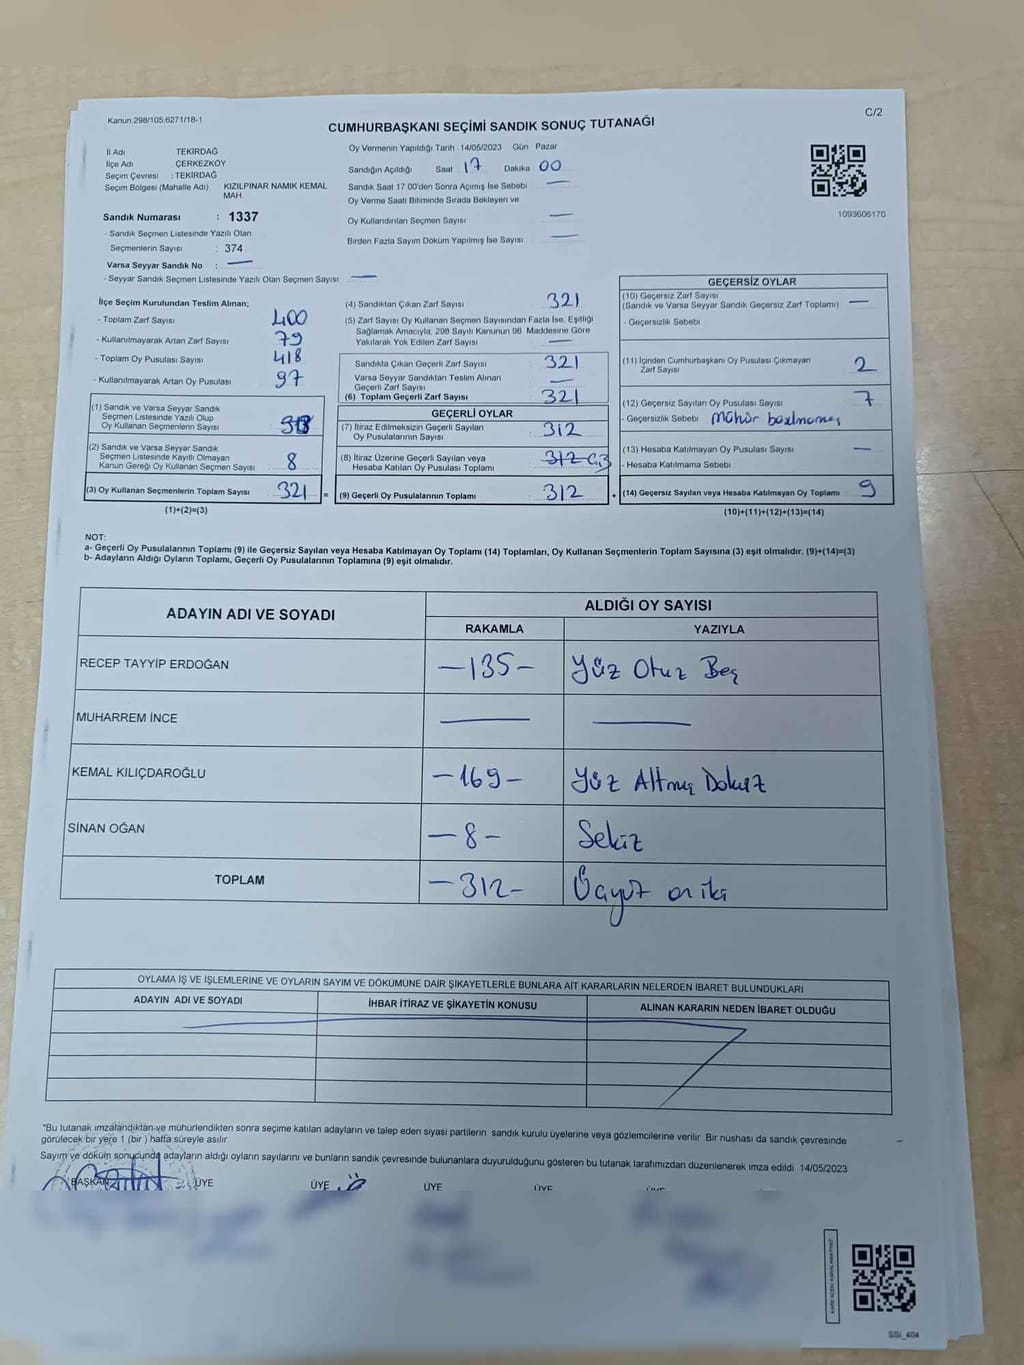 Kanun 298/105,6271/18-1
C/2
CUMHURBAŞKANI SEÇİMİ SANDIK SONUÇ TUTANAĞI
İl Adı TEKİRDAĞ
İlçe Adı ÇERKEZKÖY
Seçim Çevresi : TEKİRDAĞ
Seçim Bölgesi (Mahalle Adı) KIZILPINAR NAMIK KEMAL
MAH.
Sandık Numarası : 1337
- Sandık Seçmen Listesinde Yazılı Olan
Seçmenlerin Sayısı : 374
Varsa Seyyar Sandık No : —
- Seyyar Sandık Seçmen Listesinde Yazılı Olan Seçmen Sayısı —
Oy Vermenin Yapıldığı Tarih : 14/05/2023 Gün Pazar
Sandığın Açıldığı Saat 17 Dakika 00
Sandık Saat 17.00'den Sonra Açımış İse Sebebi —
Oy Verme Saati Bitiminde Sırada Bekleyen ve
Oy Kullandırılan Seçmen Sayısı —
Birden Fazla Sayım Döküm Yapılmış İse Sayısı —
1093606170
İlçe Seçim Kurulundan Teslim Alınan;
- Toplam Zarf Sayısı 400
- Kullanılmayarak Artan Zarf Sayısı 79
- Toplam Oy Pusulası Sayısı 418
- Kullanılmayarak Artan Oy Pusulası 97
(1) Sandık ve Varsa Seyyar Sandık
Seçmen Listesinde Yazılı Olup
Oy Kullanan Seçmenlerin Sayısı
(2) Sandık ve Varsa Seyyar Sandık
Seçmen Listesinde Kayıtlı Olmayan
Kanun Gereği Oy Kullanan Seçmen Sayısı 8
(3) Oy Kullanan Seçmenlerin Toplam Sayısı 321 =
(1)+(2)=(3)
(4) Sandıktan Çıkan Zarf Sayısı 321
(5) Zarf Sayısı Oy Kullanan Seçmen Sayısından Fazla İse, Eşitliği
Sağlamak Amacıyla, 298 Sayılı Kanunun 98. Maddesine Göre
Yakılarak Yok Edilen Zarf Sayısı —
Sandıkta Çıkan Geçerli Zarf Sayısı 321
Varsa Seyyar Sandıktan Teslim Alınan
Geçerli Zarf Sayısı —
(6) Toplam Geçerli Zarf Sayısı 321
GEÇERLİ OYLAR
(7) İtiraz Edilmeksizin Geçerli Sayılan
Oy Pusulalarının Sayısı 312
(8) İtiraz Üzerine Geçerli Sayılan veya
Hesaba Katılan Oy Pusulası Toplamı 312
(9) Geçerli Oy Pusulalarının Toplamı 312 +
GEÇERSİZ OYLAR
(10) Geçersiz Zarf Sayısı
(Sandık ve Varsa Seyyar Sandık Geçersiz Zarf Toplamı) —
- Geçersizlik Sebebi
(11) İçinden Cumhurbaşkanı Oy Pusulası Çıkmayan
Zarf Sayısı 2
(12) Geçersiz Sayılan Oy Pusulası Sayısı 7
- Geçersizlik Sebebi Mühür basılmamış
(13) Hesaba Katılmayan Oy Pusulası Sayısı —
- Hesaba Katılmama Sebebi
(14) Geçersiz Sayılan veya Hesaba Katılmayan Oy Toplamı 9
(10)+(11)+(12)+(13)=(14)
NOT:
a- Geçerli Oy Pusulalarının Toplamı (9) ile Geçersiz Sayılan veya Hesaba Katılmayan Oy Toplamı (14) Toplamları, Oy Kullanan Seçmenlerin Toplam Sayısına (3) eşit olmalıdır. (9)+(14)=(3)
b- Adayların Aldığı Oyların Toplamı, Geçerli Oy Pusulalarının Toplamına (9) eşit olmalıdır.
ADAYIN ADI VE SOYADI
ALDIĞI OY SAYISI
RAKAMLA YAZIYLA
RECEP TAYYİP ERDOĞAN —135— Yüz Otuz Beş
MUHARREM İNCE — —
KEMAL KILIÇDAROĞLU —169— Yüz Altmış Dokuz
SİNAN OĞAN —8— Sekiz
TOPLAM —312— Üçyüz on iki
OYLAMA İŞ VE İŞLEMLERİNE VE OYLARIN SAYIM VE DÖKÜMÜNE DAİR ŞİKAYETLERLE BUNLARA AİT KARARLARIN NELERDEN İBARET BULUNDUKLARI
ADAYIN ADI VE SOYADI İHBAR İTİRAZ VE ŞİKAYETİN KONUSU ALINAN KARARIN NEDEN İBARET OLDUĞU
*Bu tutanak imzalandıktan ve mühürlendikten sonra seçime katılan adayların ve talep eden siyasi partilerin sandık kurulu üyelerine veya gözlemcilerine verilir. Bir nushası da sandık çevresinde
görülecek bir yere 1 (bir ) hafta süreyle asılır.
Sayım ve döküm sonucunda adayların aldığı oyların sayılarını ve bunların sandık çevresinde bulunanlara duyurulduğunu gösteren bu tutanak tarafımızdan düzenlenerek imza edildi 14/05/2023
BAŞKAN ÜYE ÜYE ÜYE ÜYE
GSI_404